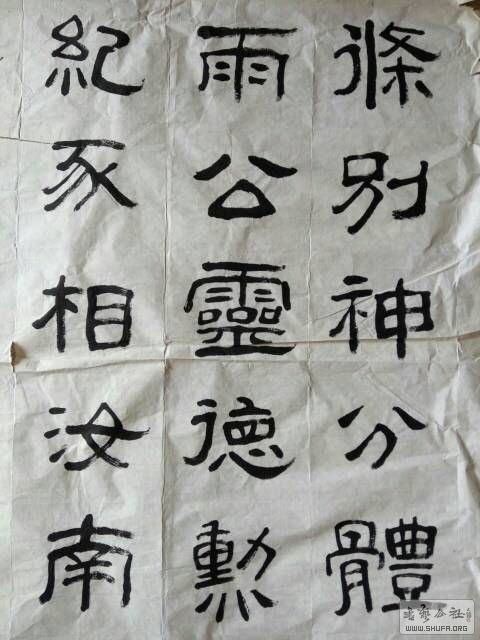 條別神分體
雨公靈德勳
紀豕相汝南
書藝公社
WWW.SHUFA.ORG